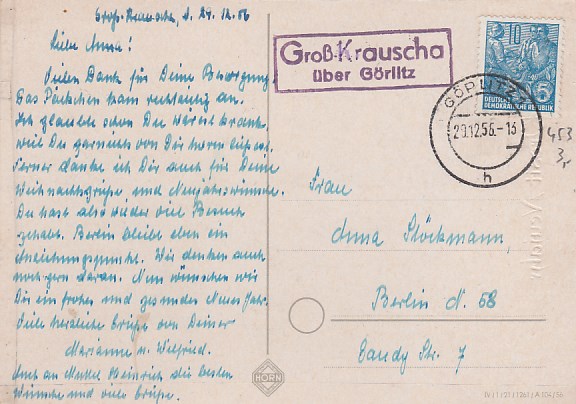 Groß-Krauscha, d. 29.12.56
Liebe Anna!
Vielen Dank für Deine Besorgung.
Das Päckchen kam rechtzeitig an.
Ich glaubte schon Du wärest krank,
weil Du garnichts von Dir hören ließest.
Ferner danke ich Dir auch für Deine
Weihnachtsgrüße und Neujahrswünsche.
Du hast also wieder viel Besuch
gehabt. Berlin bleibt eben ein
Anziehungspunkt. Wir denken auch
noch gern daran. Nun wünschen wir
Dir ein frohes und gesundes Neues Jahr.
Viele herzliche Grüße von Deiner
Marianne u. Wilfried.
Auch an Onkel Heinrich die besten
Wünsche und viele Grüße.
Groß-Krauscha
über Görlitz
10
DEUTSCHE
DEMOKRATISCHE REPUBLIK
GÖRLITZ
29.12.56.-13
h
453
3,-
Frau
Anna Stöckmann,
Berlin N. 58
Gaudy Str. 7
HORN